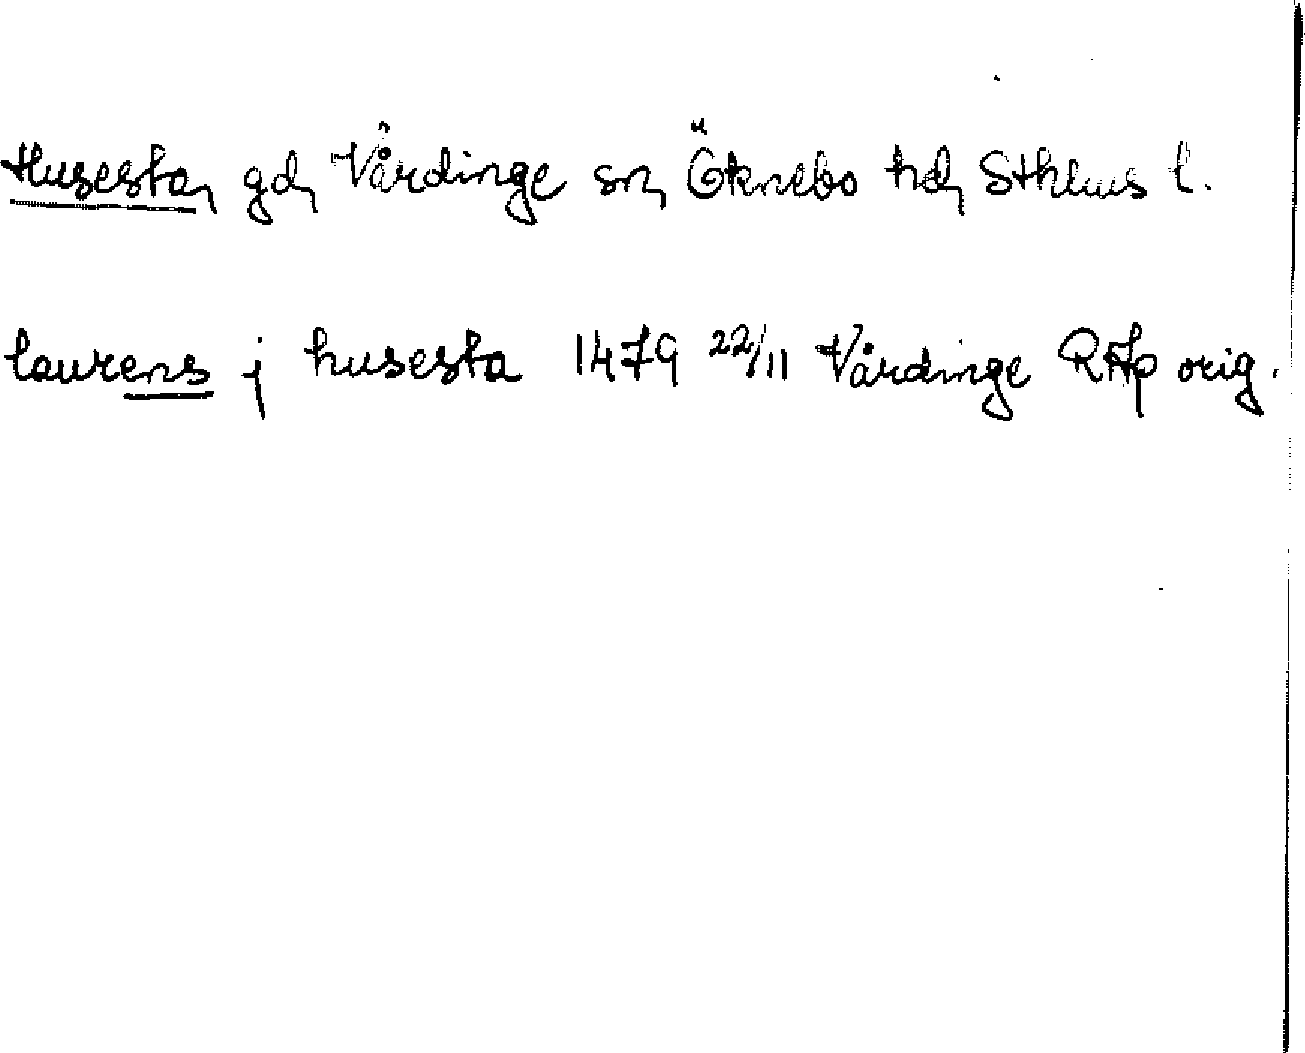 Husesta, gd, Vårdinge sn, Öknebo hd, Sthlms l.
laurens j husesta 1479 22/11 Vårdinge RAp orig.